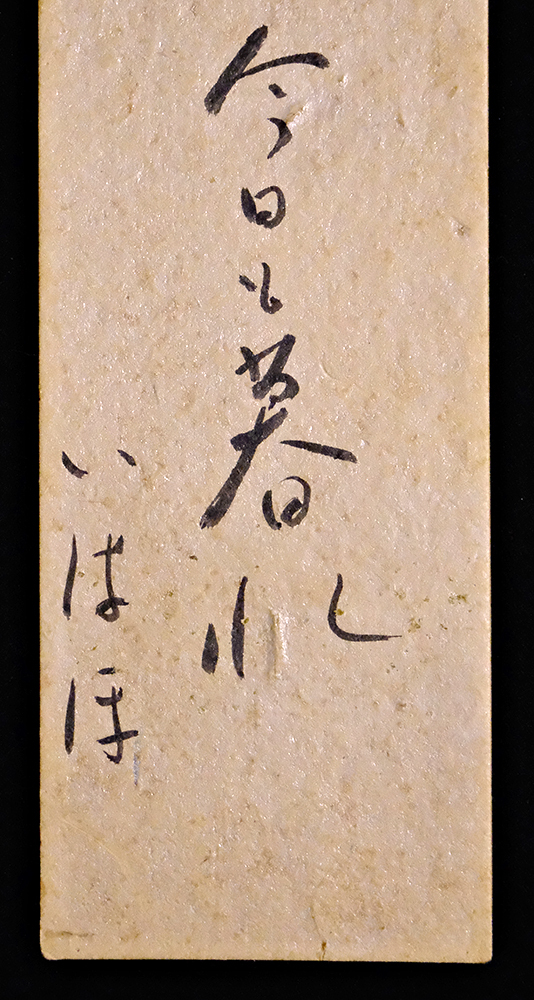 今日も暮れ
いはほ